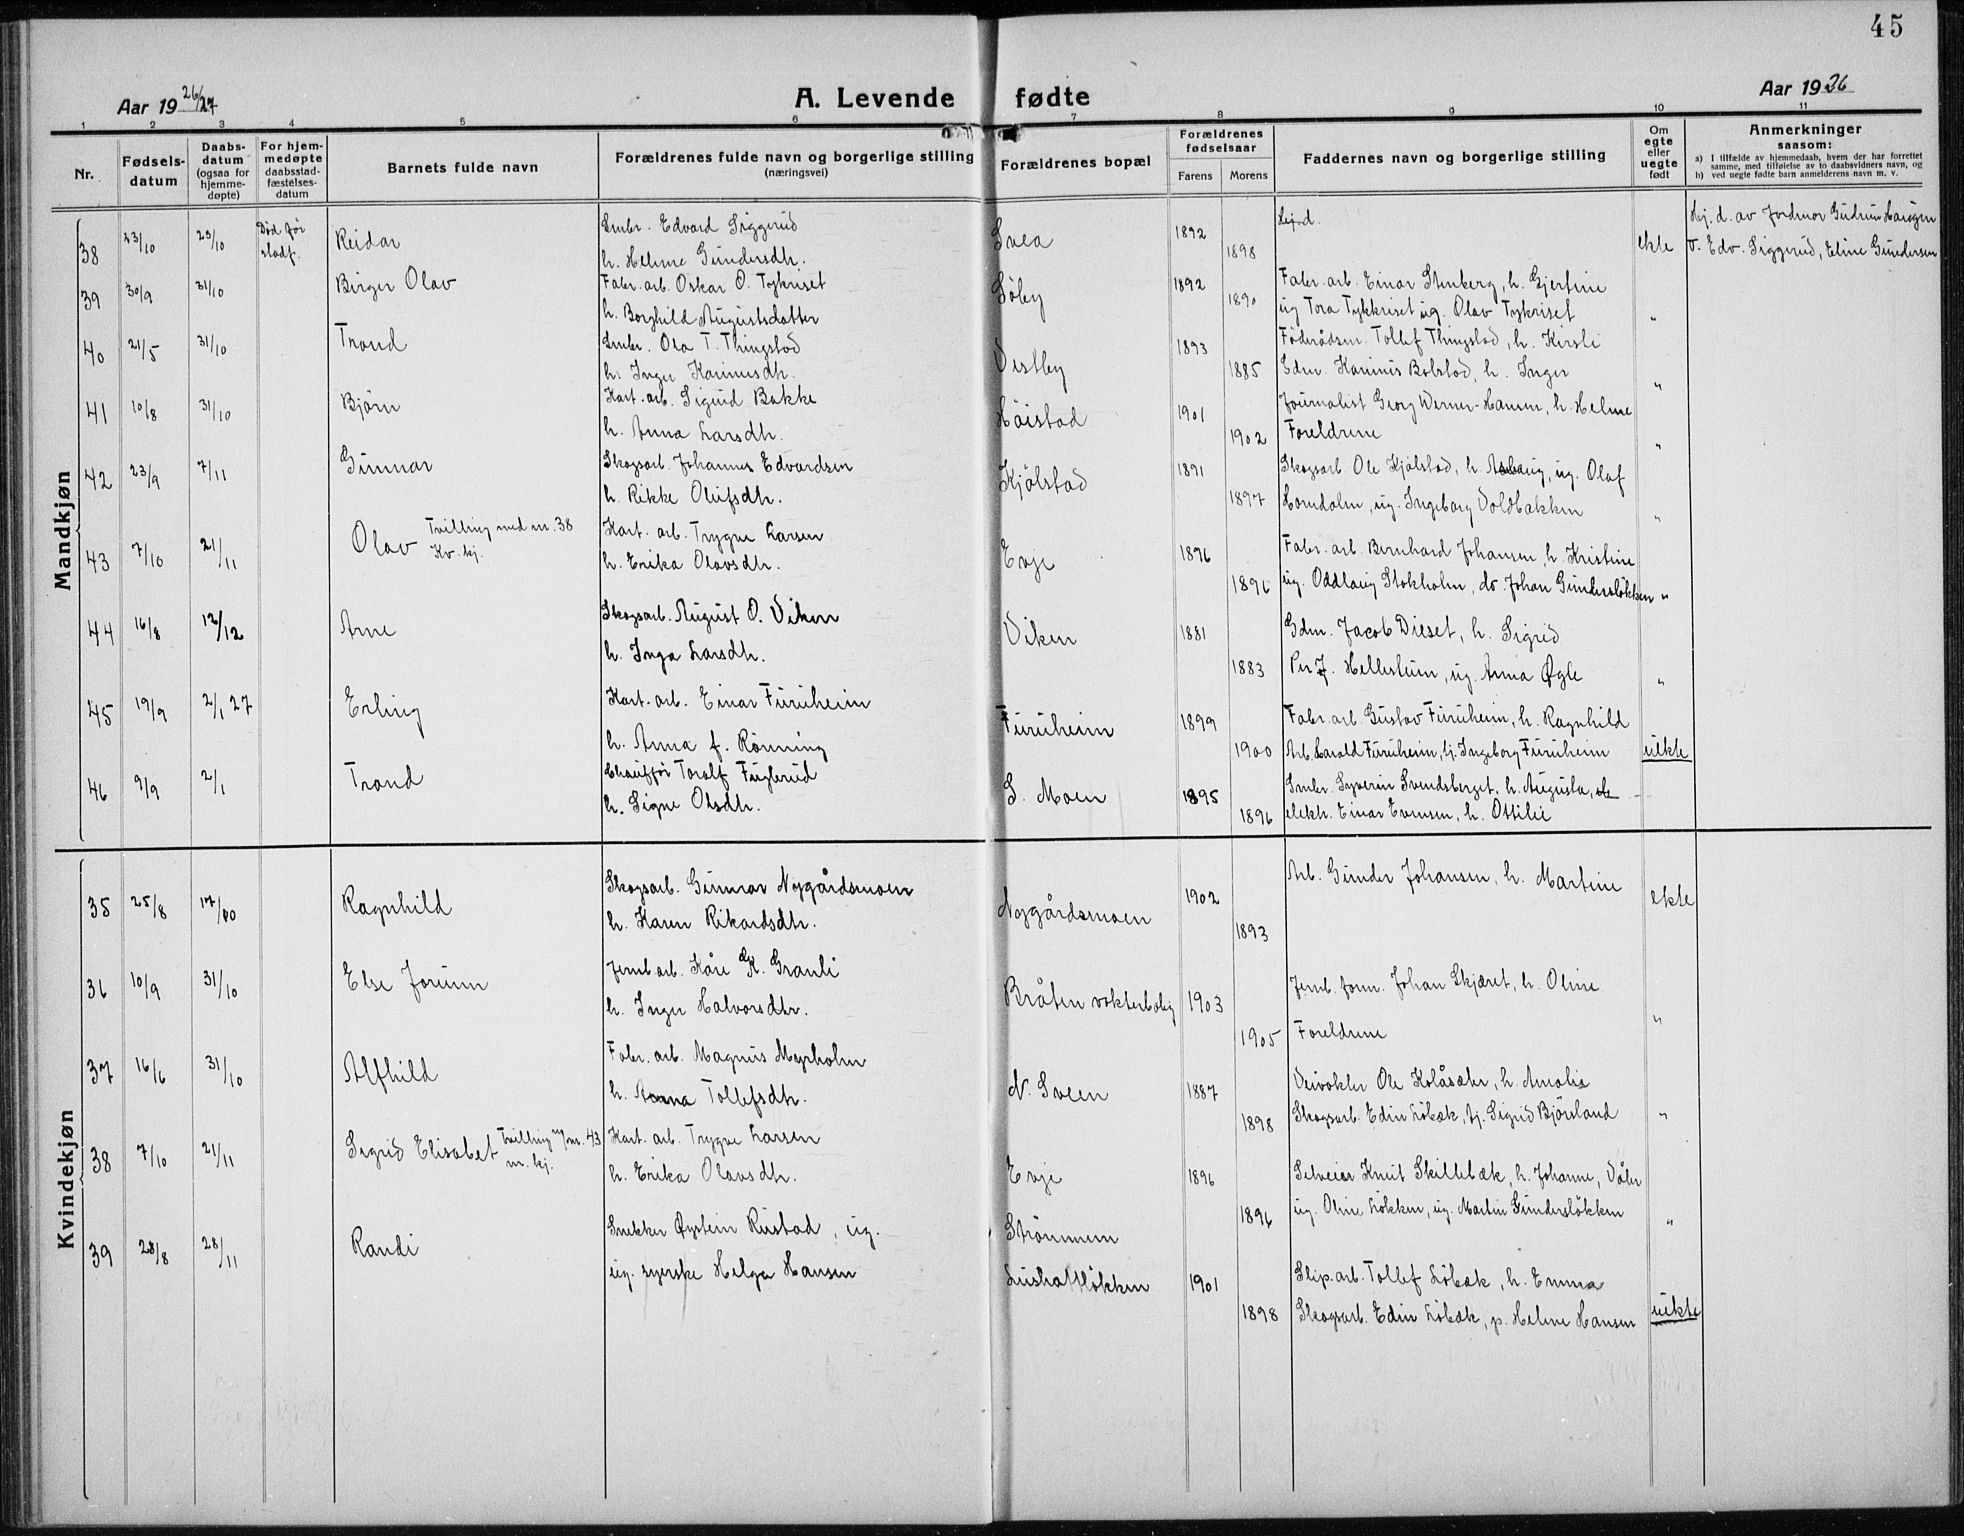 45
Aar 1926/27
A. Levende fødte
Aar 1926
1 2 3 4 5 6 7 8 9 10 11
Nr.
Fødsels-
datum
Daabs-
datum
(ogsaa for
hjemme-
døpte)
For hjem-
medøpte
daabsstad-
fæstelses-
datum
Barnets fulde navn
Forældrenes fulde navn og borgerlige stilling
(næringsvei)
Forældrenes bopæl
Forældrenes
fødselsaar
Farens Morens
Faddernes navn og borgerlige stilling
Om
egte
eller
uegte
født
Anmerkninger
saasom:
a) I tilfælde av hjemmedaab, hvem der har forrettet
samme, med tilføielse av to daabsvidners navn, og
b) ved uegte fødte barn anmelderens navn m. v.
Mandkjøn
38 23/10 23/10 Død før
stadf.
Reidar
Smbr. Edvard Siggerud
h. Helene Gundersdtr.
Svea 1892 1898
Hj.d.
ekte
Hj. d. av Jordmor Gudrun Haugen
v. Edv. Siggerud, Eline Gundersen
39 30/9 31/10 Birger Olav
Fabr. arb. Oskar O. Tykriset
h. Borghild Augustsdatter
Söby 1892 1890
Fabr. arb. Einar Stenberg, h. Gjertine
ug Tora Tykkriset ug. Olav Tykriset
"
40 21/5 31/10 Trond
Smbr. Ola T. Thingstad
h. Inger Kaninusdtr.
Vestby 1893 1885
Föderådsm. Tollef Thingstad, h. Kirsti
Gdm. Kaninus Bolstad, h. Inger
"
41 10/8 31/10 Björn
Kart. arb. Sigurd Bakke
h. Anna Larsdtr.
Höistad 1901 1902
Journalist Georg Werner-Hansen, h. Helene
Foreldrene
"
42 23/9 7/11 Gunnar
Skogsarb. Johannes Edvardsen
h. Rikke Olufsdtr.
Kjölstad 1891 1897
Skogsarb. Ole Kjölstad, h. Aslaug, ug. Olaf
Horndalen, ug. Ingeborg Voldbakken
"
43 7/10 21/11 Olav Tvilling med nr. 38
Kv. kj.
Kart. arb. Trygve Larsen
h. Erika Olavsdtr.
Evje 1896 1896
Fabr. arb. Bernhard Johansen, h. Kristine
ug. Oddlaug Stokholm, do. Johan Gundersløkken "
44 16/8 12/12 Arne
Skogsarb. August O. Viken
h. Inga Larsdtr.
Viken 1881 1883
Gdm. Jacob Dieset, h. Sigrid
Per J. Hellestein, ug. Anna Øgle
"
45 19/9 2/1 27 Erling
Kart. arb. Einar Furuheim
h. Anna f. Rönning
Furuheim 1899 1900
Fabr. arb. Gustav Furuheim, h. Ragnhild
Arb. Harald Furuheim, tj. Ingeborg Furuheim
uekte
46 9/9 2/1 Trond
Chauffør Toralf Fuglerud
h. Signe Olsdtr.
S. Moen 1895 1896
Smbr. Syverin Svendsberget, h. Augusta, ele
elektr. Einar Evensen, h. Ottilie
Kvindekjøn
35 25/8 17/10 Ragnhild
Skogsarb. Gunnar Nygårdsmoen
h. Karen Rikardsdtr.
Nygårdsmoen 1902 1893
Arb. Gunder Johansen, h. Martine
ekte
36 10/9 31/10 Else Jorunn
Jernb. arb. Kåre K. Granli
h. Inger Halvorsdtr.
Bråten vokterbolig 1903 1905
Jernb. form. Johan Skjæret, h. Oline
Foreldrene
"
37 16/6 31/10 Alfhild
Fabr. arb. Magnus Myrholm
h. Anna Tollefsdtr.
N. Sveen 1887 1898
Veivokter Ole Kolåsæter, h. Amalia
Skogsarb. Edin Löbæk, tj. Sigrid Björsland
"
38 7/10 21/11 Sigrid Elisabet Tvilling m/nr. 43
m. kj.
Kart. arb. Trygve Larsen
h. Erika Olavsdtr.
Evje 1896 1896
Selveier Knut Skillebæk, h. Johanne, Våler
ug. Oline Lökken, ug. Martin Gundersløkken
"
39 28/8 28/11 Randi
Snekker Øystein Rustad, ug.
ug. syerske Helga Hansen
Strömmen
1901 1898
Slip. arb. Tollef Löbæk, h. Emma
Skogsarb. Edin Löbæk, p. Helene Hansen
uekte